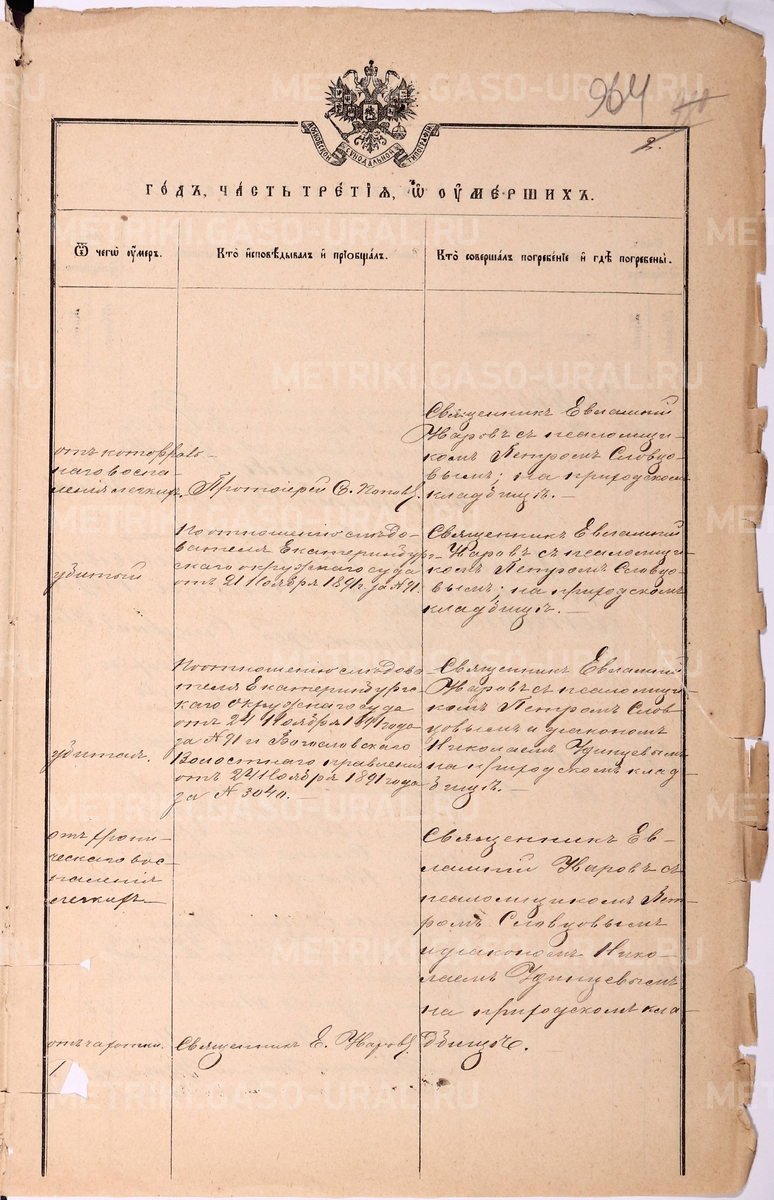 964
2.
МОСКОВСКОЙ СУНОДАЛЬНОЙ ТИПОГРАФІИ
ГОДЪ, ЧАСТЬ ТРЕТІЯ, Ѿ ОУМЕРШИХЪ.
Ѿ чегѡ оумеръ.
Кто исповѣдывалъ и пріобщалъ.
Кто совершалъ погребеніе и гдѣ погребены.
отъ катарраль-
наго воспа-
ленія легкихъ.
Протоіерей С. Поповъ.
Священникъ Евлампій
Наровъ съ псаломщи-
комъ Петромъ Словцо-
вымъ; на приходскомъ
кладбищѣ. —
убитый
По отношенію слѣдо-
вателя Екатеринбур-
скаго окружнаго суда
отъ 21 Ноября 1891 г. за № 91.
Священникъ Евлампій
Наровъ съ псаломщи-
комъ Петромъ Словцо-
вымъ; на приходскомъ
кладбищѣ. —
убитая.
По отношенію слѣдова-
теля Екатеринбургс-
каго Окружнаго суда
отъ 24 Ноября 1891 года
за № 91 и Богословскаго
Волостнаго правленія
отъ 24 Ноября 1891 года
за № 3040. —
Священникъ Евлампій
Наровъ съ псаломщи-
комъ Петромъ Слов-
цовымъ и діакономъ
Николаемъ Удинцевымъ
на приходскомъ клад-
бищѣ. —
отъ хрони-
ческаго вос-
паленія
легкихъ. —
Священникъ Ев-
лампій Наровъ съ
псаломщикомъ Пет-
ромъ Словцовымъ
и діакономъ Нико-
лаемъ Удинцевымъ
на приходскомъ кла-
дбищѣ. —
отъ чахотки.
Священникъ Е. Наровъ.
METRIKI.GASO-URAL.RU